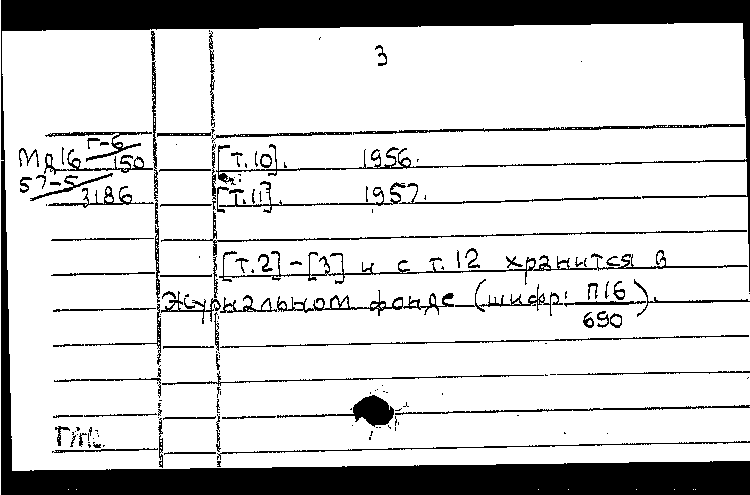 3
Мд16 Г-6/150 [Т.10]. 1956.
57-5/3186 [Т.11]. 1957.
[Т.2]-[3] и с т.12 хранится в
Журнальном фонде (шифр: П16/690).